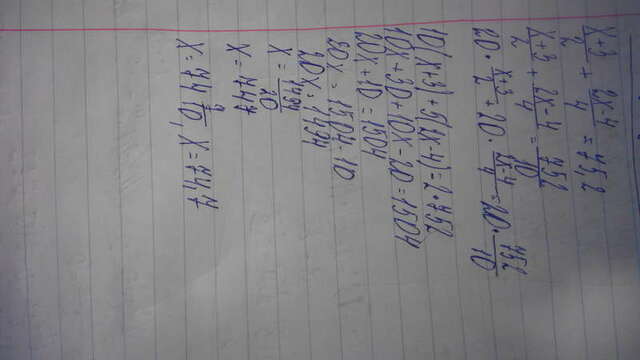 x+3/2 + 2x-4/4 = 75,2
x+3/2 + 2x-4/4 = 752/10
20 · x+3/2 + 20 · 2x-4/4 = 20 · 752/10
10(x+3)+5(2x-4)=2·752
10x+30+10x-20=1504
20x+10=1504
20x=1504-10
20x=1494
x=1494/20
x=74 7/10, x=74,7